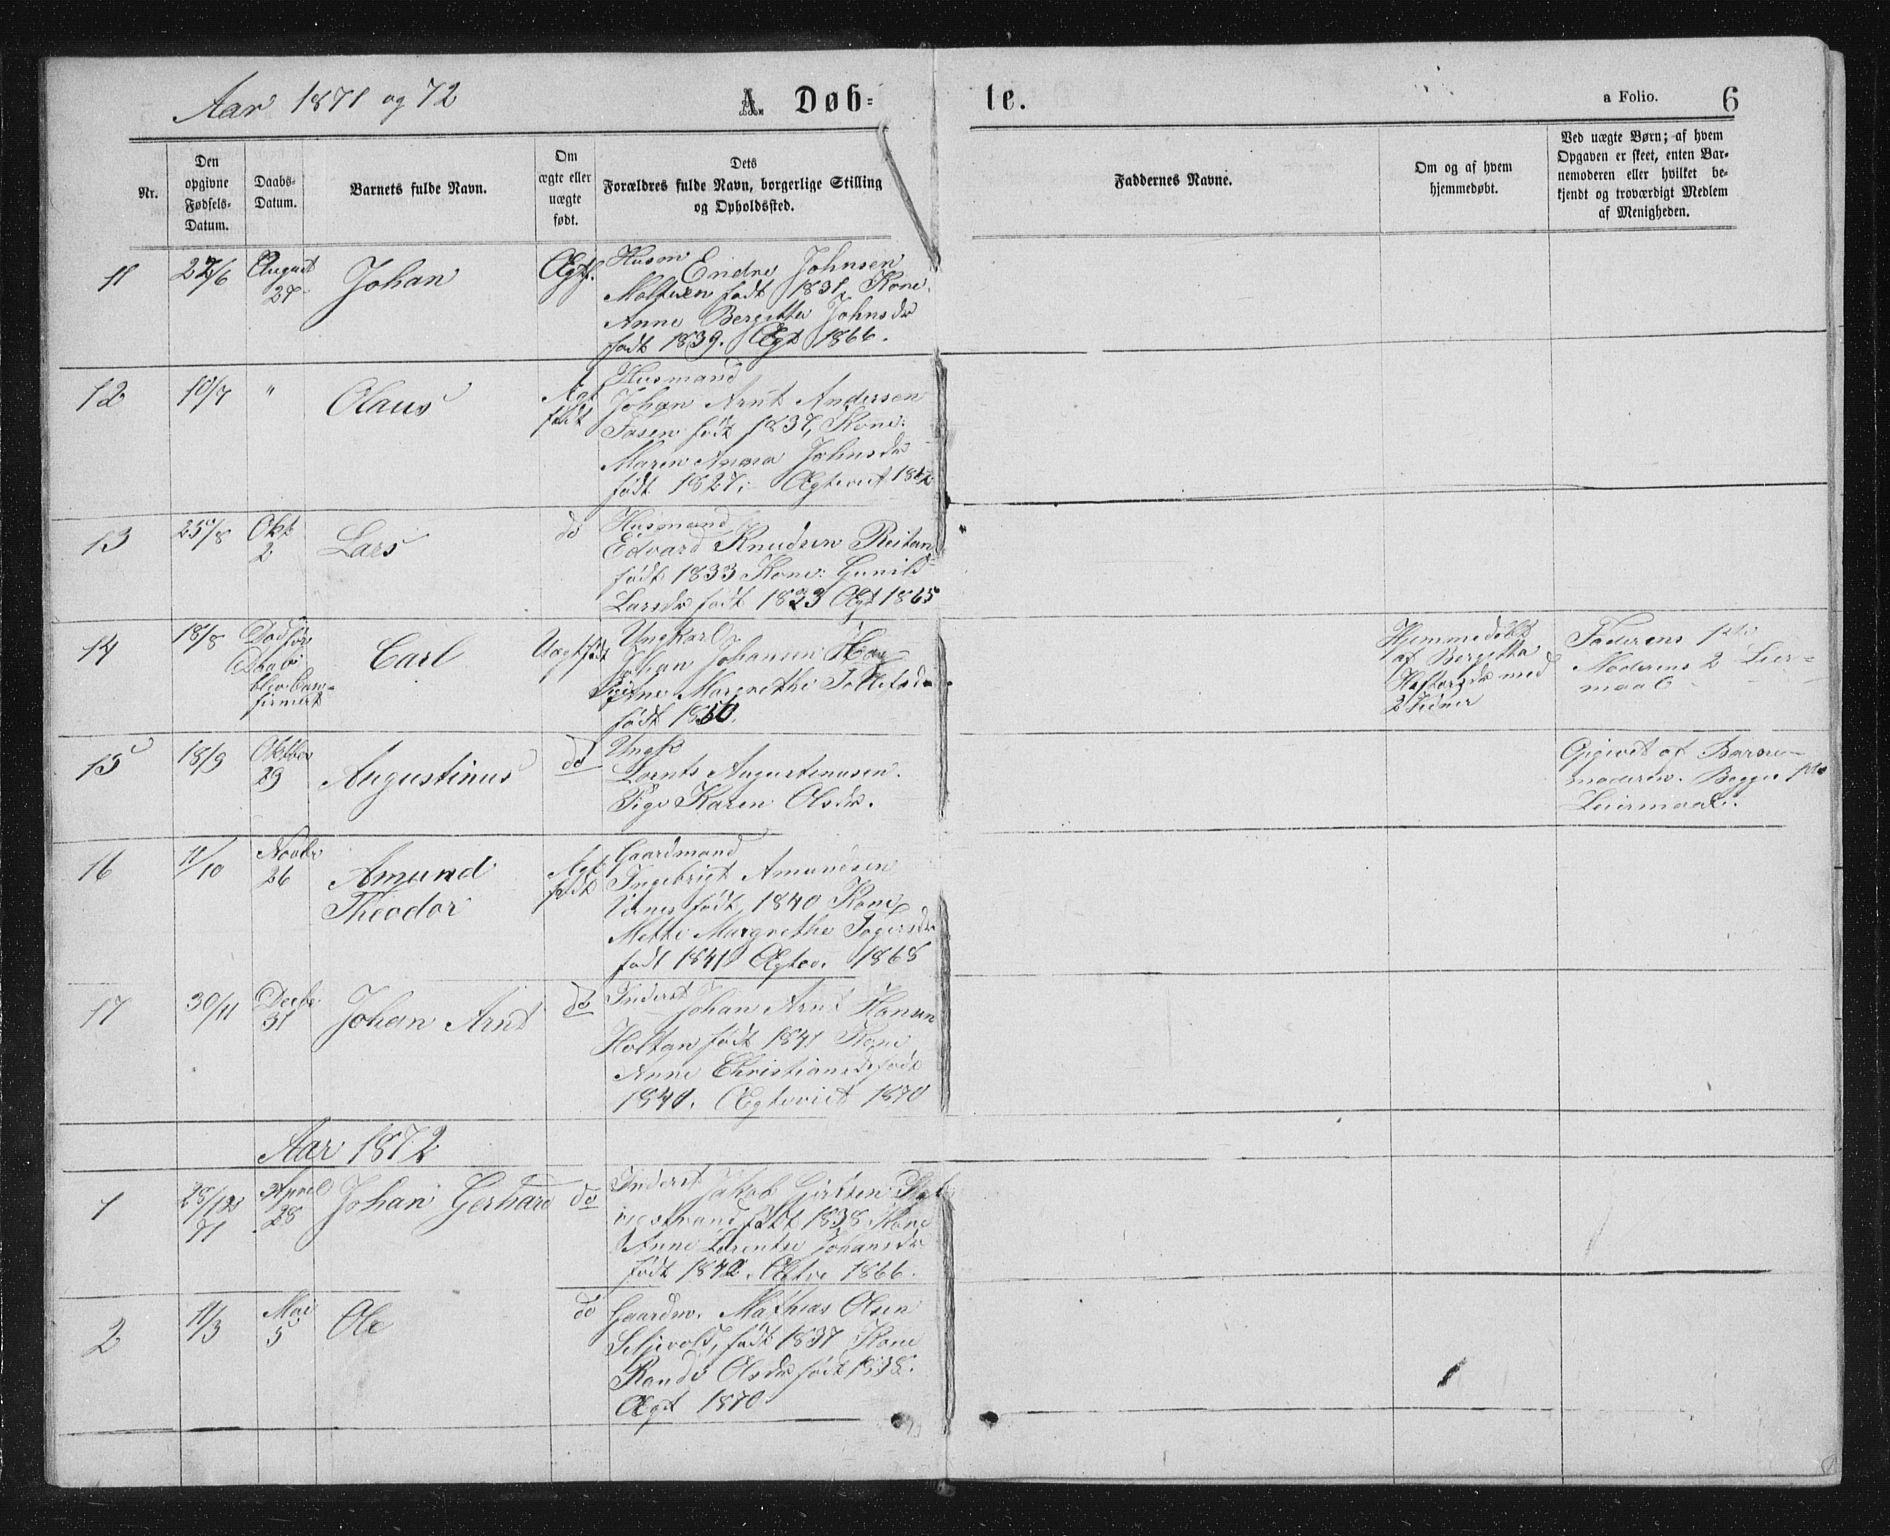 Aar 1871 og 72
A. Døb=
te.
a Folio.
6
Nr.
Den
opgivne
Fødsels-
Datum.
Daabs-
Datum.
Barnets fulde Navn.
Om
ægte eller
uægte
født.
Dets
Forældres fulde Navn, borgerlige Stilling
og Opholdssted.
Faddernes Navne.
Om og af hvem
hjemmedøbt.
Ved uægte Børn; af hvem
Opgaven er skeet, enten Bar-
nemoderen eller hvilket be-
kjendt og troværdigt Medlem
af Menigheden.
11
22/6
August
27
Johan
Ægtf.
Husm
Endre Johnsen
født 1831, Kone
Anne Bergitta Johnsdr
født 1839. Ægt 1866.
12
10/7
"
Olaus
Ægt
født
Husmand
Johan Arnt Andersen
født 1837, Kone:
Maren Anna Johnsdr
født 1827; Ægteviet
13
25/8
Okt
2
Lars
do
Husmand
Edvard Knudsen Reitan
født 1833 Kone: Gunild
Larsdr født 1823 Ægt 1865
14
18/8
Død før
Daab
blev Con-
firmert
Carl
Uægtefødt
Ungkarl
Johan Johansen
Pige Margrethe
født 1850.
Hjemmedøbt
af Bergitta
med
2 Vidner
Faderens 1ste
Moderens 2 Leier-
maal
15
18/9
Oktbr
29
Augustinus
do
Ungk
Lornts Augustinusen.
Pige Karen Olsdr.
Opgivet af Barne-
moderen. Begges 1ste
Leiermaal.
16
11/10
Novbr
26
Amund
Theodor
Ægt
født
Gaardmand
Ingebrigt Amundsen
født 1840 Kone
Mette Margrethe
født 1841 Ægtev. 1868
17
30/11
Decbr
31
Johan Arnt
do
Inderst
Johan Arnt Hansen
Holtan født 1841 Kone
Anne Christiansdr født
1840. Ægteviet 1870
Aar 1872
1
28/12
71
April
28
Johan Gerhard
do
Inderst Jakob
født 1838 Kone
Anne Lorentse Johansdr
født 1842. Ægtev 1866.
2
11/3
Mai
5
Ole
do
Gaardm. Mathias Olsen
født 1837 Kone
Randi Olsdr født 1838.
Ægt 1870